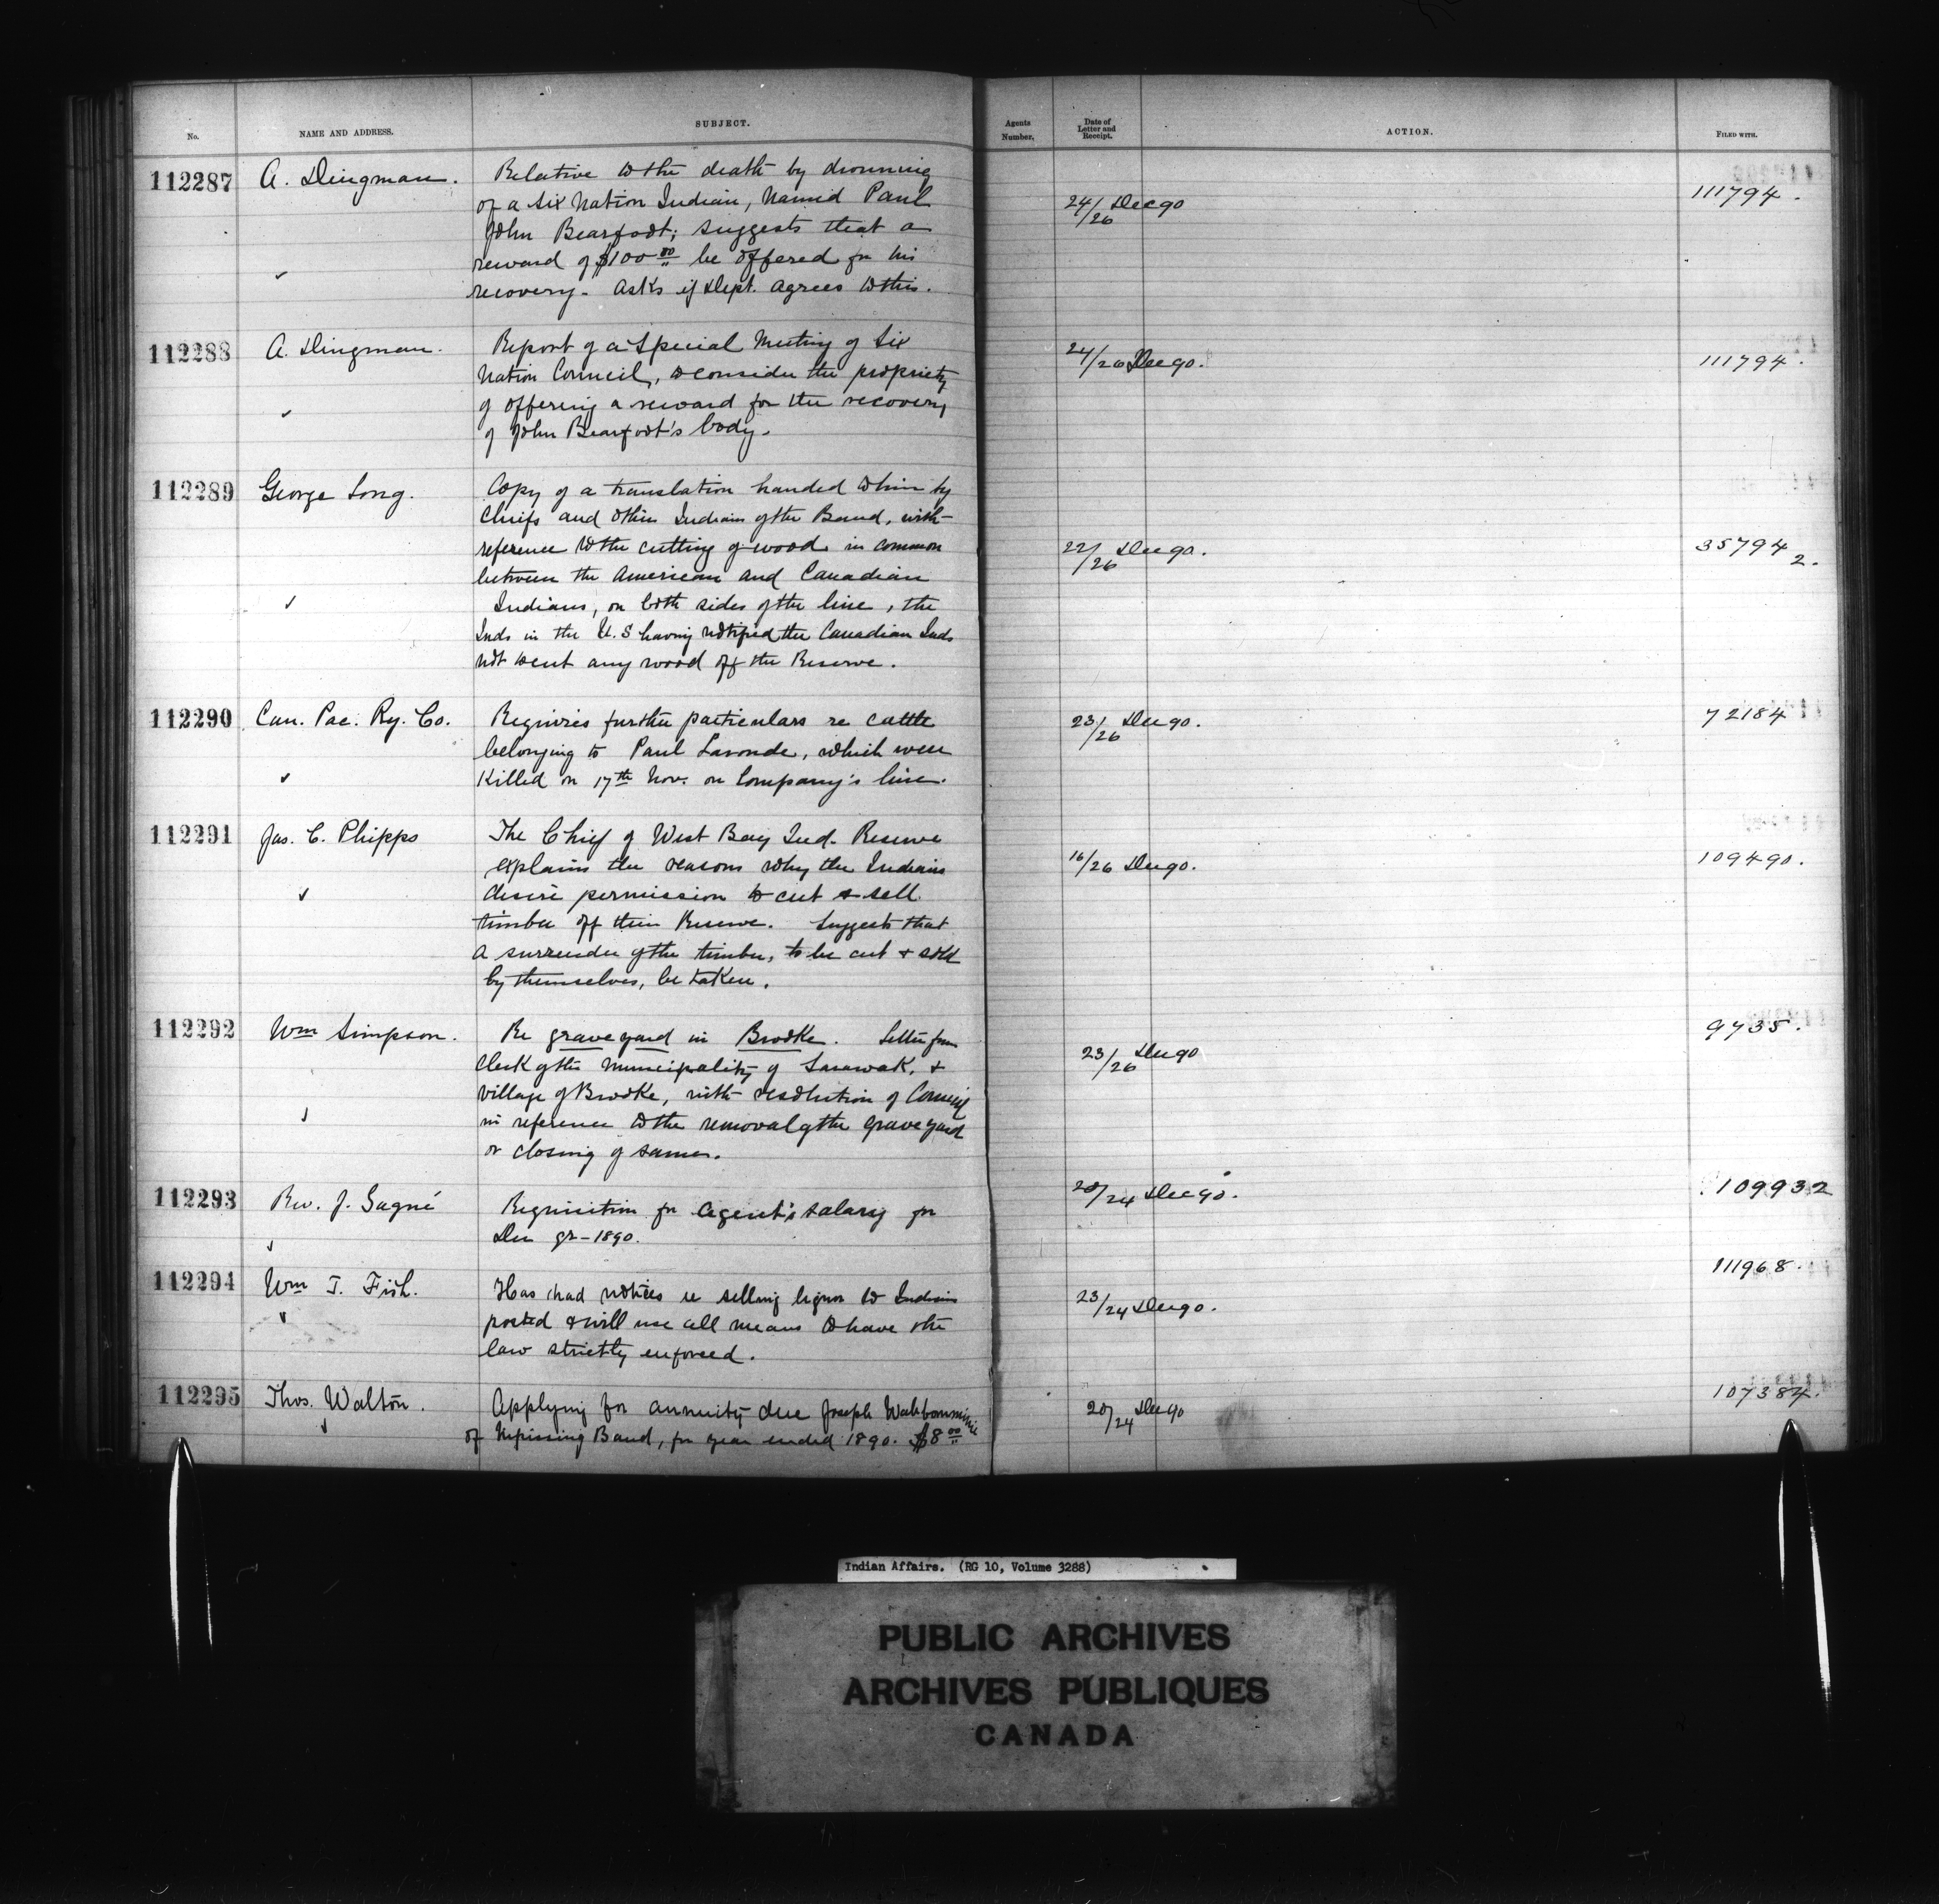 No. NAME AND ADDRESS. SUBJECT. Agents Number. Date of Letter and Receipt. ACTION. FILED WITH.
112287 A. Dingman. Relative to the death by drowning
of a Six Nation Indian, named Paul 24/26 Dec 90 111794.
John Bearfoot; suggests that a
reward of $100 00 be offered for his
recovery - Asks if Dept. agrees to this.
112288 A. Dingman. Report of a Special Meeting of Six 24/26 Dec 90. 111794.
Nation Council, to consider the propriety
of offering a reward for the recovery
of John Bearfoot's body.
112289 George Long. Copy of a translation handed to him by
Chiefs and other Indians of the Band, with
reference to the cutting of wood in common 22/26 Dec 90. 35794 2.
between the American and Canadian
Indians, on both sides of the line, the
Inds in the U.S having notified the Canadian Inds
not to cut any wood off the Reserve.
112290 Can. Pac. Ry. Co. Requires further particulars re cattle 23/26 Dec 90. 72184
belonging to Paul Laronde, which were
killed on 17th Nov. on Company's line.
112291 Jas. C. Phipps The Chief of West Bay Ind. Reserve
explains the reasons why the Indians 16/26 Dec 90. 109490.
desire permission to cut & sell
timber off their Reserve. Suggests that
a surrender of the timber, to be cut & sold
by themselves, be taken.
112292 Wm Simpson. Re graveyard in Brooke. Letter from 9735.
Clerk of the Municipality of Sarawak, & 23/26 Dec 90
village of Brooke, with resolution of Council
in reference to the removal of the graveyard
or closing of same.
112293 Rev. J. Gagné Requisition for Agent's salary for 20/24 Dec 90. 109932
Dec qr - 1890.
112294 Wm T. Fish. Has had notices re selling liquor to Indians 23/24 Dec 90. 111968.
posted & will use all means to have the
law strictly enforced.
112295 Thos. Walton. Applying for annuity due Joseph 20/24 Dec 90 107384.
of Nipissing Band, for year ended 1890. $8 00
Indian Affairs. (RG 10, Volume 3288)
PUBLIC ARCHIVES
ARCHIVES PUBLIQUES
CANADA